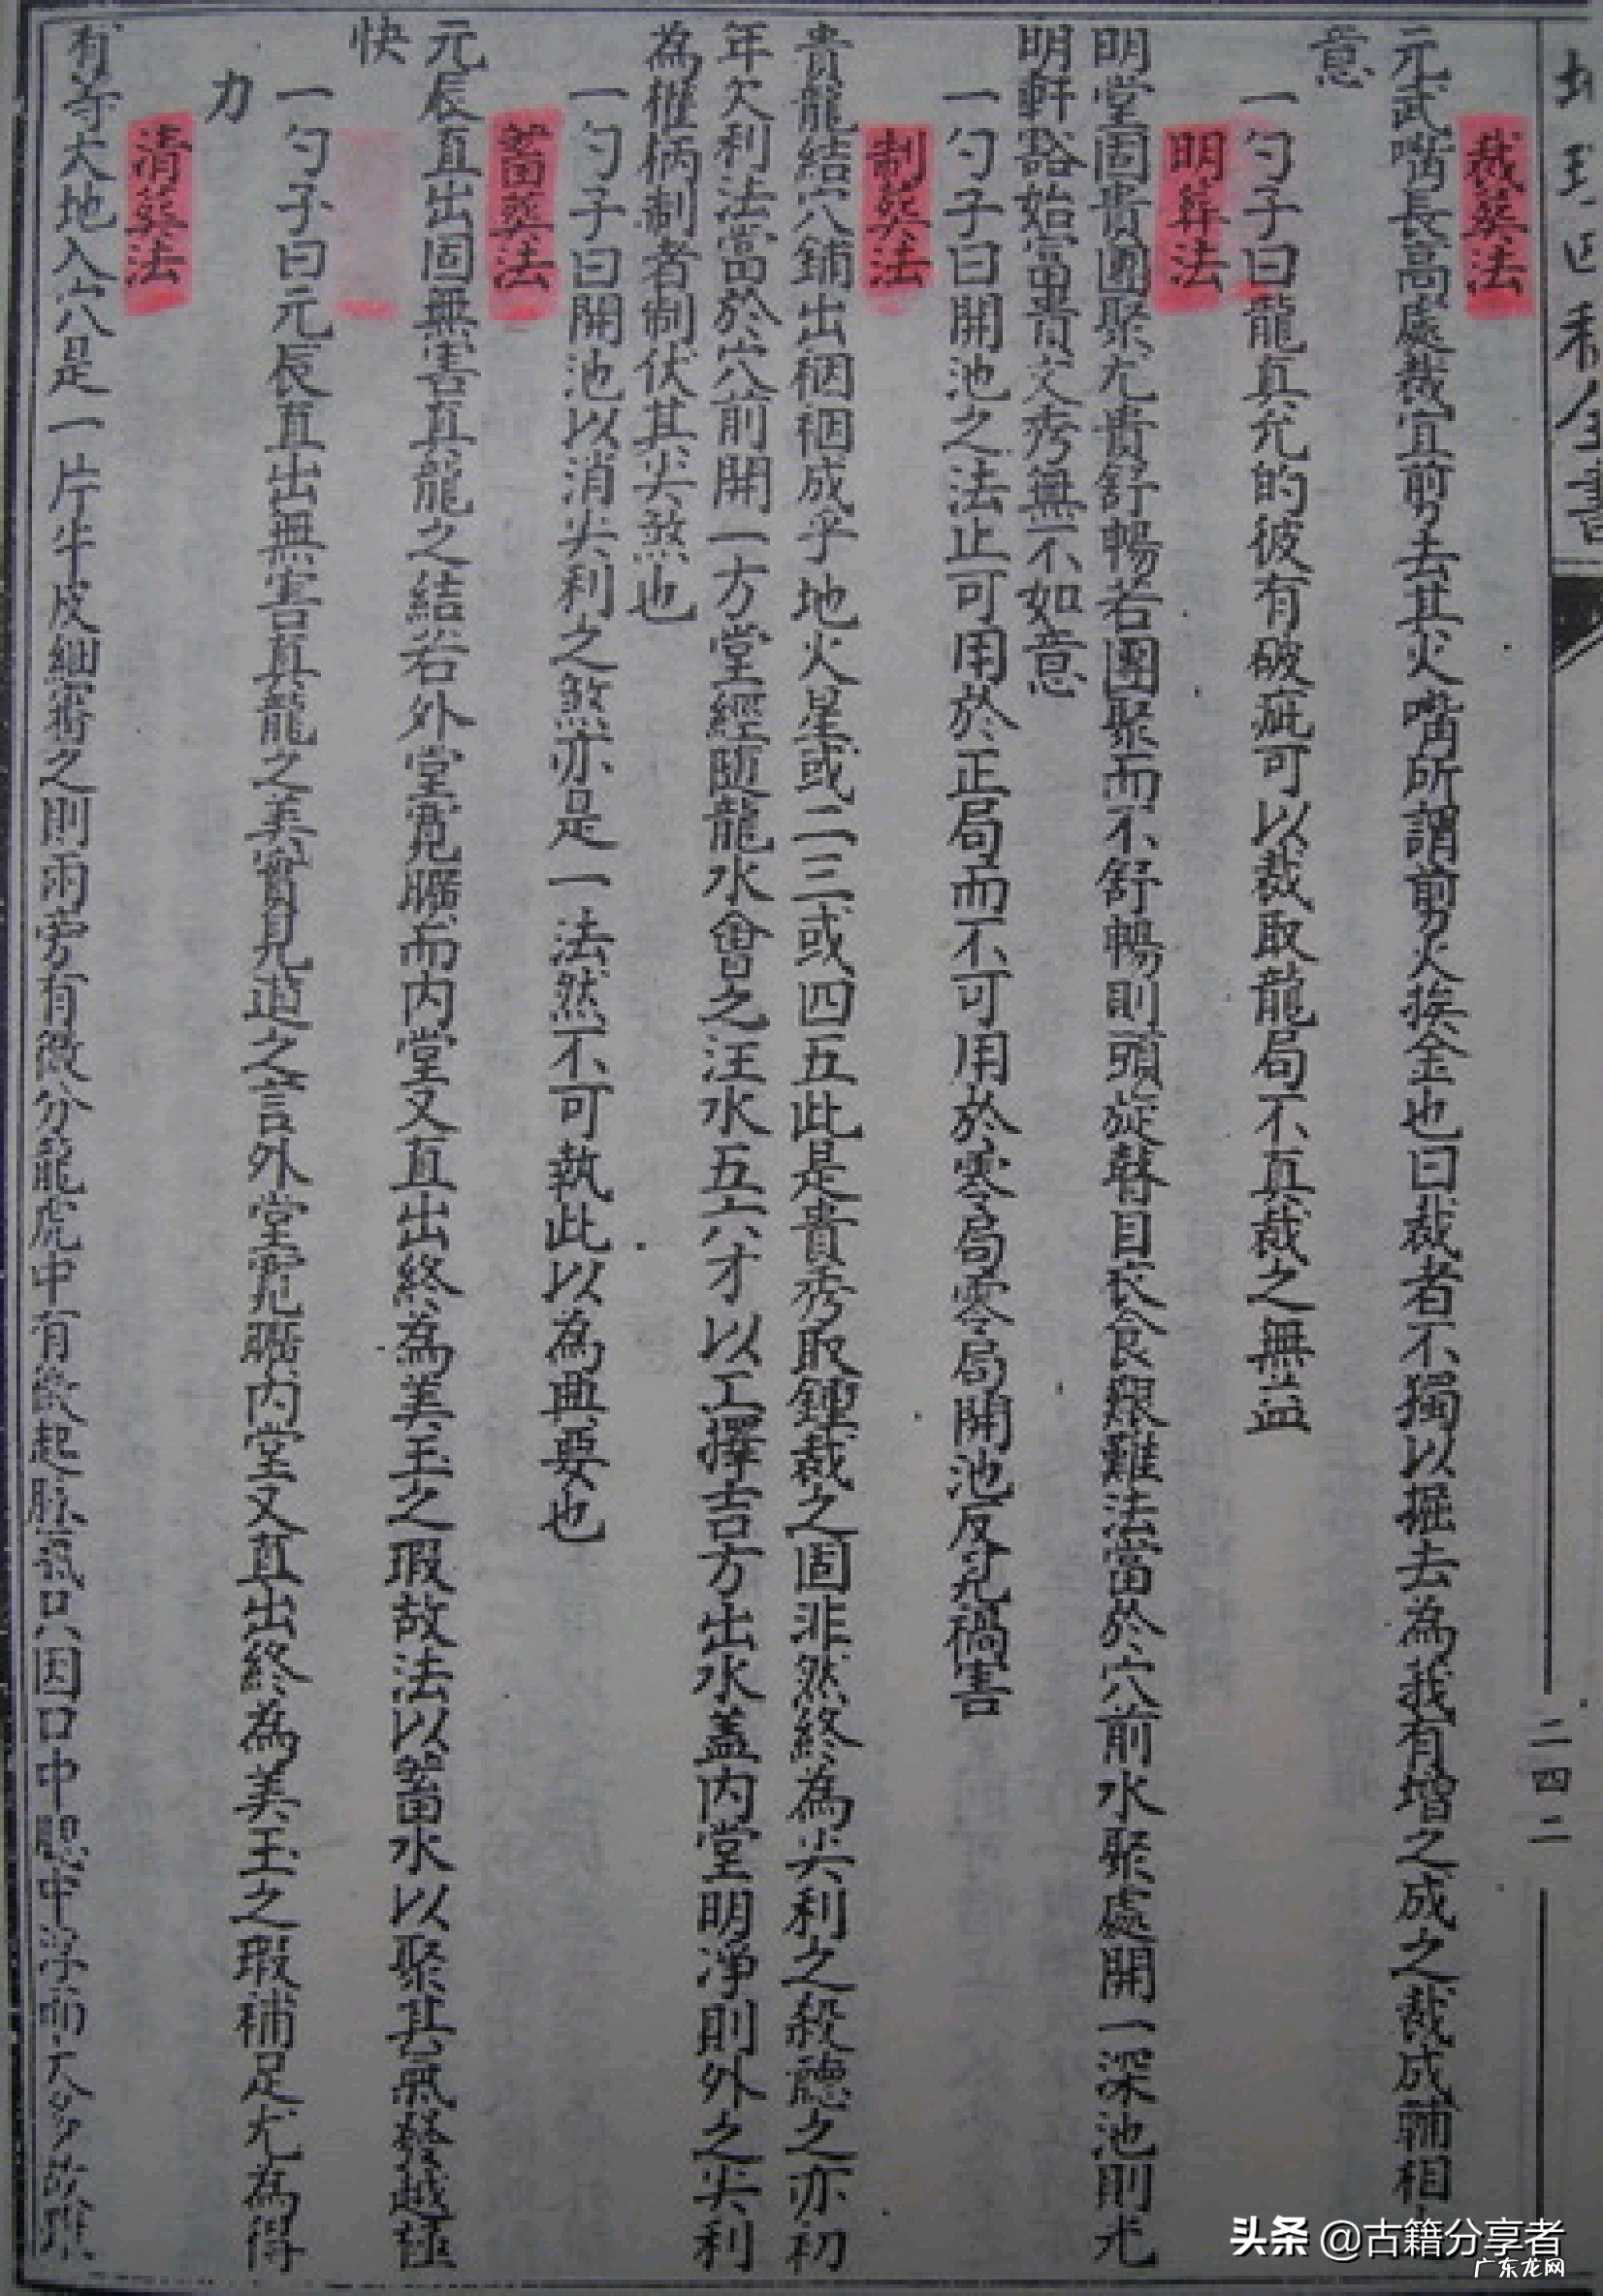 二四二
裁葬法
元武嘴長高處裁宜剪去其火嘴所謂剪火挨金也曰裁者不獨以掘去為裁有增之成之裁成輔相
意
一勺子曰龍真允的彼有破疵可以裁取龍局不真裁之無益
明葬法
明堂固貴團聚尤貴舒暢若團聚而不舒暢則頭旋瞽目衣食艱難法當於穴前水聚處開一深池則尤
明軒豁始富貴文秀無不如意
一勺子曰開池之法止可用於正局而不可用於零局零局開池反見禍害
制葬法
貴龍結穴鋪出裀裀成乎地火星或二三或四五此是貴秀取鍾裁之固非然終為尖利之殺聽之亦初
年欠利法當於穴前開一方堂經随龍水會之汪水五六才以工擇吉方出水盖内堂明淨則外之尖利
為權柄制者制伏其尖煞也
一勺子曰開池以消尖利之煞亦是一法然不可執此以為典要也
蓄葬法
元辰直出固無害真龍之結若外堂寬曠而内堂又直出終為美玉之瑕故法以蓄水以聚其氣發越極
快
一勺子曰元辰直出無害真龍之美實見道之言外堂寬曠内堂又直出終為美玉之瑕補足尤為得
力
清葬法
有等大地入穴是一片牛皮細審之則兩旁有微分龍虎中有微起脉氣只因口中
头条 @古籍分享者
广东龙网